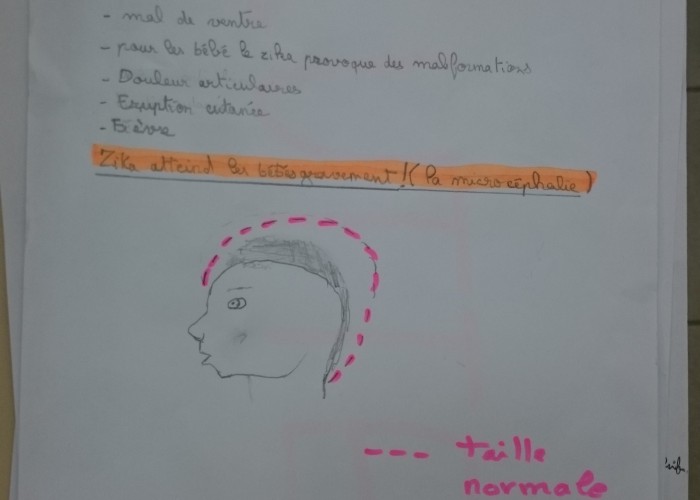 - mal de ventre
- pour les bébé le zika provoque des malformations
- Douleur articulaires
- Eruption cutanée
- Fièvre
Zika atteind les bébés gravement ! ( la microcéphalie )
--- taille
normale